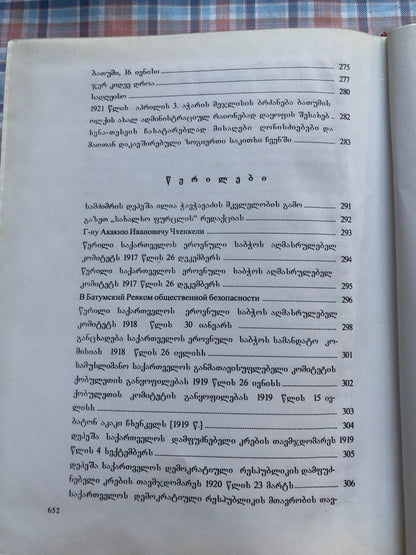 ბათუმი, 16 ივნისი 275
ჯერ კიდევ დროა 277
სადღეისო 280
1921 წლის აპრილის 3. აჭარის მეჯლისის ბრძანება ბათუმის
ოლქის ახალ ადმინისტრაციულ რაიონებად დაყოფის შესახებ 282
ხენა-თესვის ჩასატარებლად მისაღები ღონისძიებები და
მათთან დაკავშირებული ზოგიერთი საკითხი ჩვენში 283
წერილები
სამძიმრის დეპეშა ილია ჭავჭავაძის მკვლელობის გამო 291
გაზეთ „სახალხო ფურცლის“ რედაქციას 292
Г-ну Акакию Ивановичу Чхенкели 293
წერილი საქართველოს ეროვნული საბჭოს აღმასრულებელ
კომიტეტს 1917 წლის 26 დეკემბერს 294
წერილი საქართველოს ეროვნული საბჭოს აღმასრულებელ
კომიტეტს 1917 წლის 26 დეკემბერს 295
В Батумский Ревком общественной безопасности 296
წერილი საქართველოს ეროვნული საბჭოს აღმასრულებელ
კომიტეტს 1918 წლის 30 იანვარს 298
განცხადება საქართველოს ეროვნული საბჭოს სამანდატო კო-
მისიას 1918 წლის 26 ივლისს 301
სამუსლიმანო საქართველოს განმათავისუფლებელი კომიტეტის
ქობულეთის განყოფილებას 1919 წლის 26 ივნისს 302
ქობულეთის კომიტეტის განყოფილებას 1919 წლის 15 ივ-
ლისს 303
ბატონ აკაკი ჩხენკელს [1919 წ.] 304
დეპეშა საქართველოს დამფუძნებელი კრების თავმჯდომარეს 1919
წლის 4 სექტემბერს 305
დეპეშა საქართველოს დემოკრატიული რესპუბლიკის დამფუძ-
ნებელი კრების თავმჯდომარეს 1920 წლის 23 მარტს 306
საქართველოს დემოკრატიული რესპუბლიკის მთავრობის თავ-
652